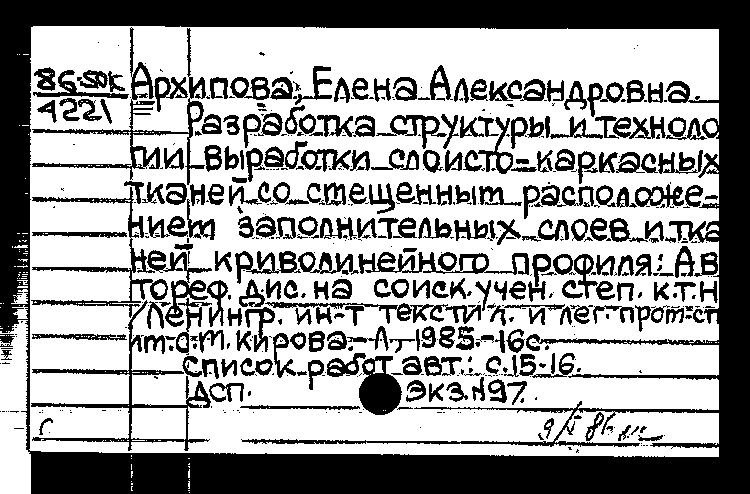 86-50к Архипова, Елена Александровна.
4221 Разработка структуры и техноло
гии выработки слоисто-каркасных
тканей со смещенным расположе-
нием заполнительных слоев и тка
ней криволинейного профиля: Ав
тореф. дис. на соиск. учен. степ. к.т.н
/Ленингр. ин-т текстил. и лег. пром-сти
им. С.М. Кирова. - Л., 1985. - 16с.
Список работ авт.: с. 15-16.
ДСП. Экз. №97.
с 9/V 86